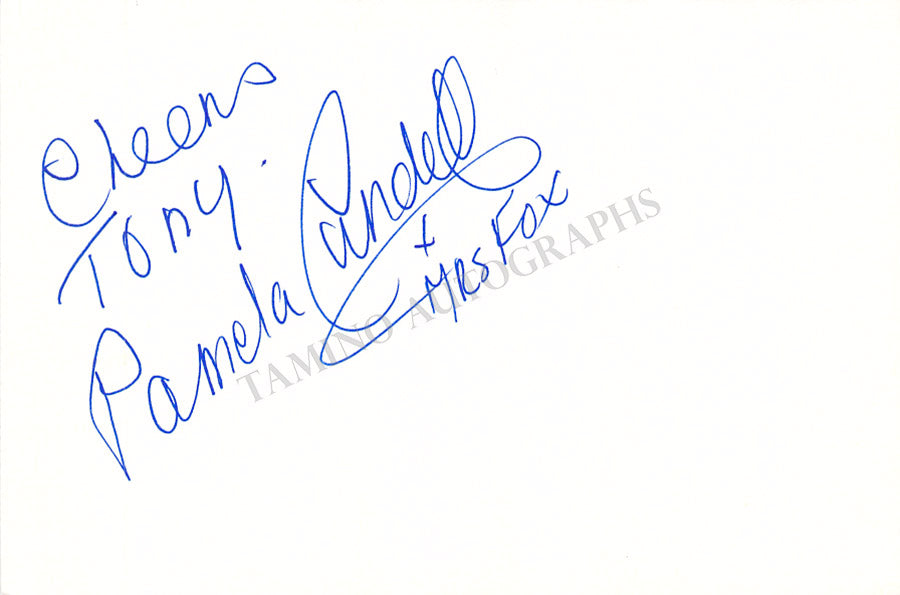 Cheers
Tony.
Pamela Cundell
+ Mrs Fox
TAMINO AUTOGRAPHS